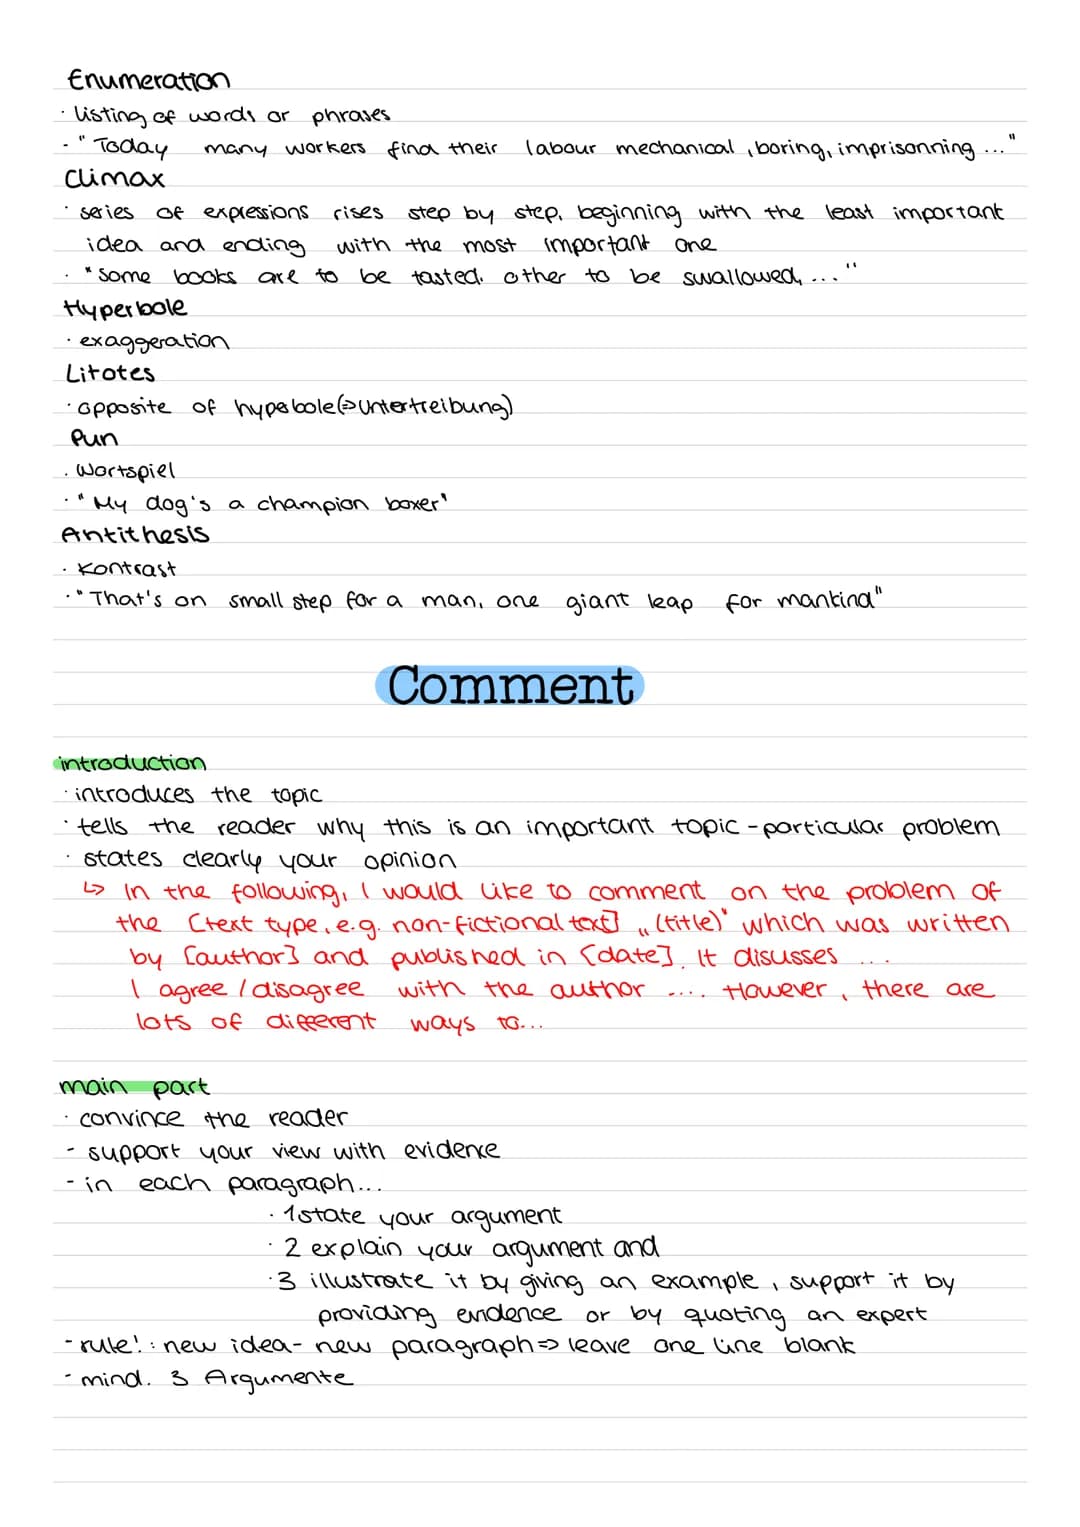 Enumeration
· listing of words or phrases
- "Today many workers find their labour mechanical, boring, imprisonning ..."
Climax
· series of expressions rises step by step, beginning with the least important
idea and ending with the most important one
· "Some books are to be tasted. other to be swallowed, ..."
Hyperbole
· exaggeration
Litotes
· opposite of hypebole(=>Untertreibung)
Pun
· Wortspiel
· "My dog's a champion boxer"
Antithesis
· Kontrast
· "That's on small step for a man, one giant leap for mankind"
Comment
introduction
· introduces the topic
· tells the reader why this is an important topic - particular problem
· states clearly your opinion
↳ In the following, I would like to comment on the problem of
the [text type, e.g. non-fictional text] „(title)" which was written
by [author] and published in [date]. It disusses ...
I agree / disagree with the author .... However, there are
lots of different ways to...
main part
· convince the reader
- support your view with evidence
- in each paragraph...
· 1 state your argument
· 2 explain your argument and
· 3 illustrate it by giving an example, support it by
providing evidence or by quoting an expert
- rule! : new idea - new paragraph => leave one line blank
- mind. 3 Argumente